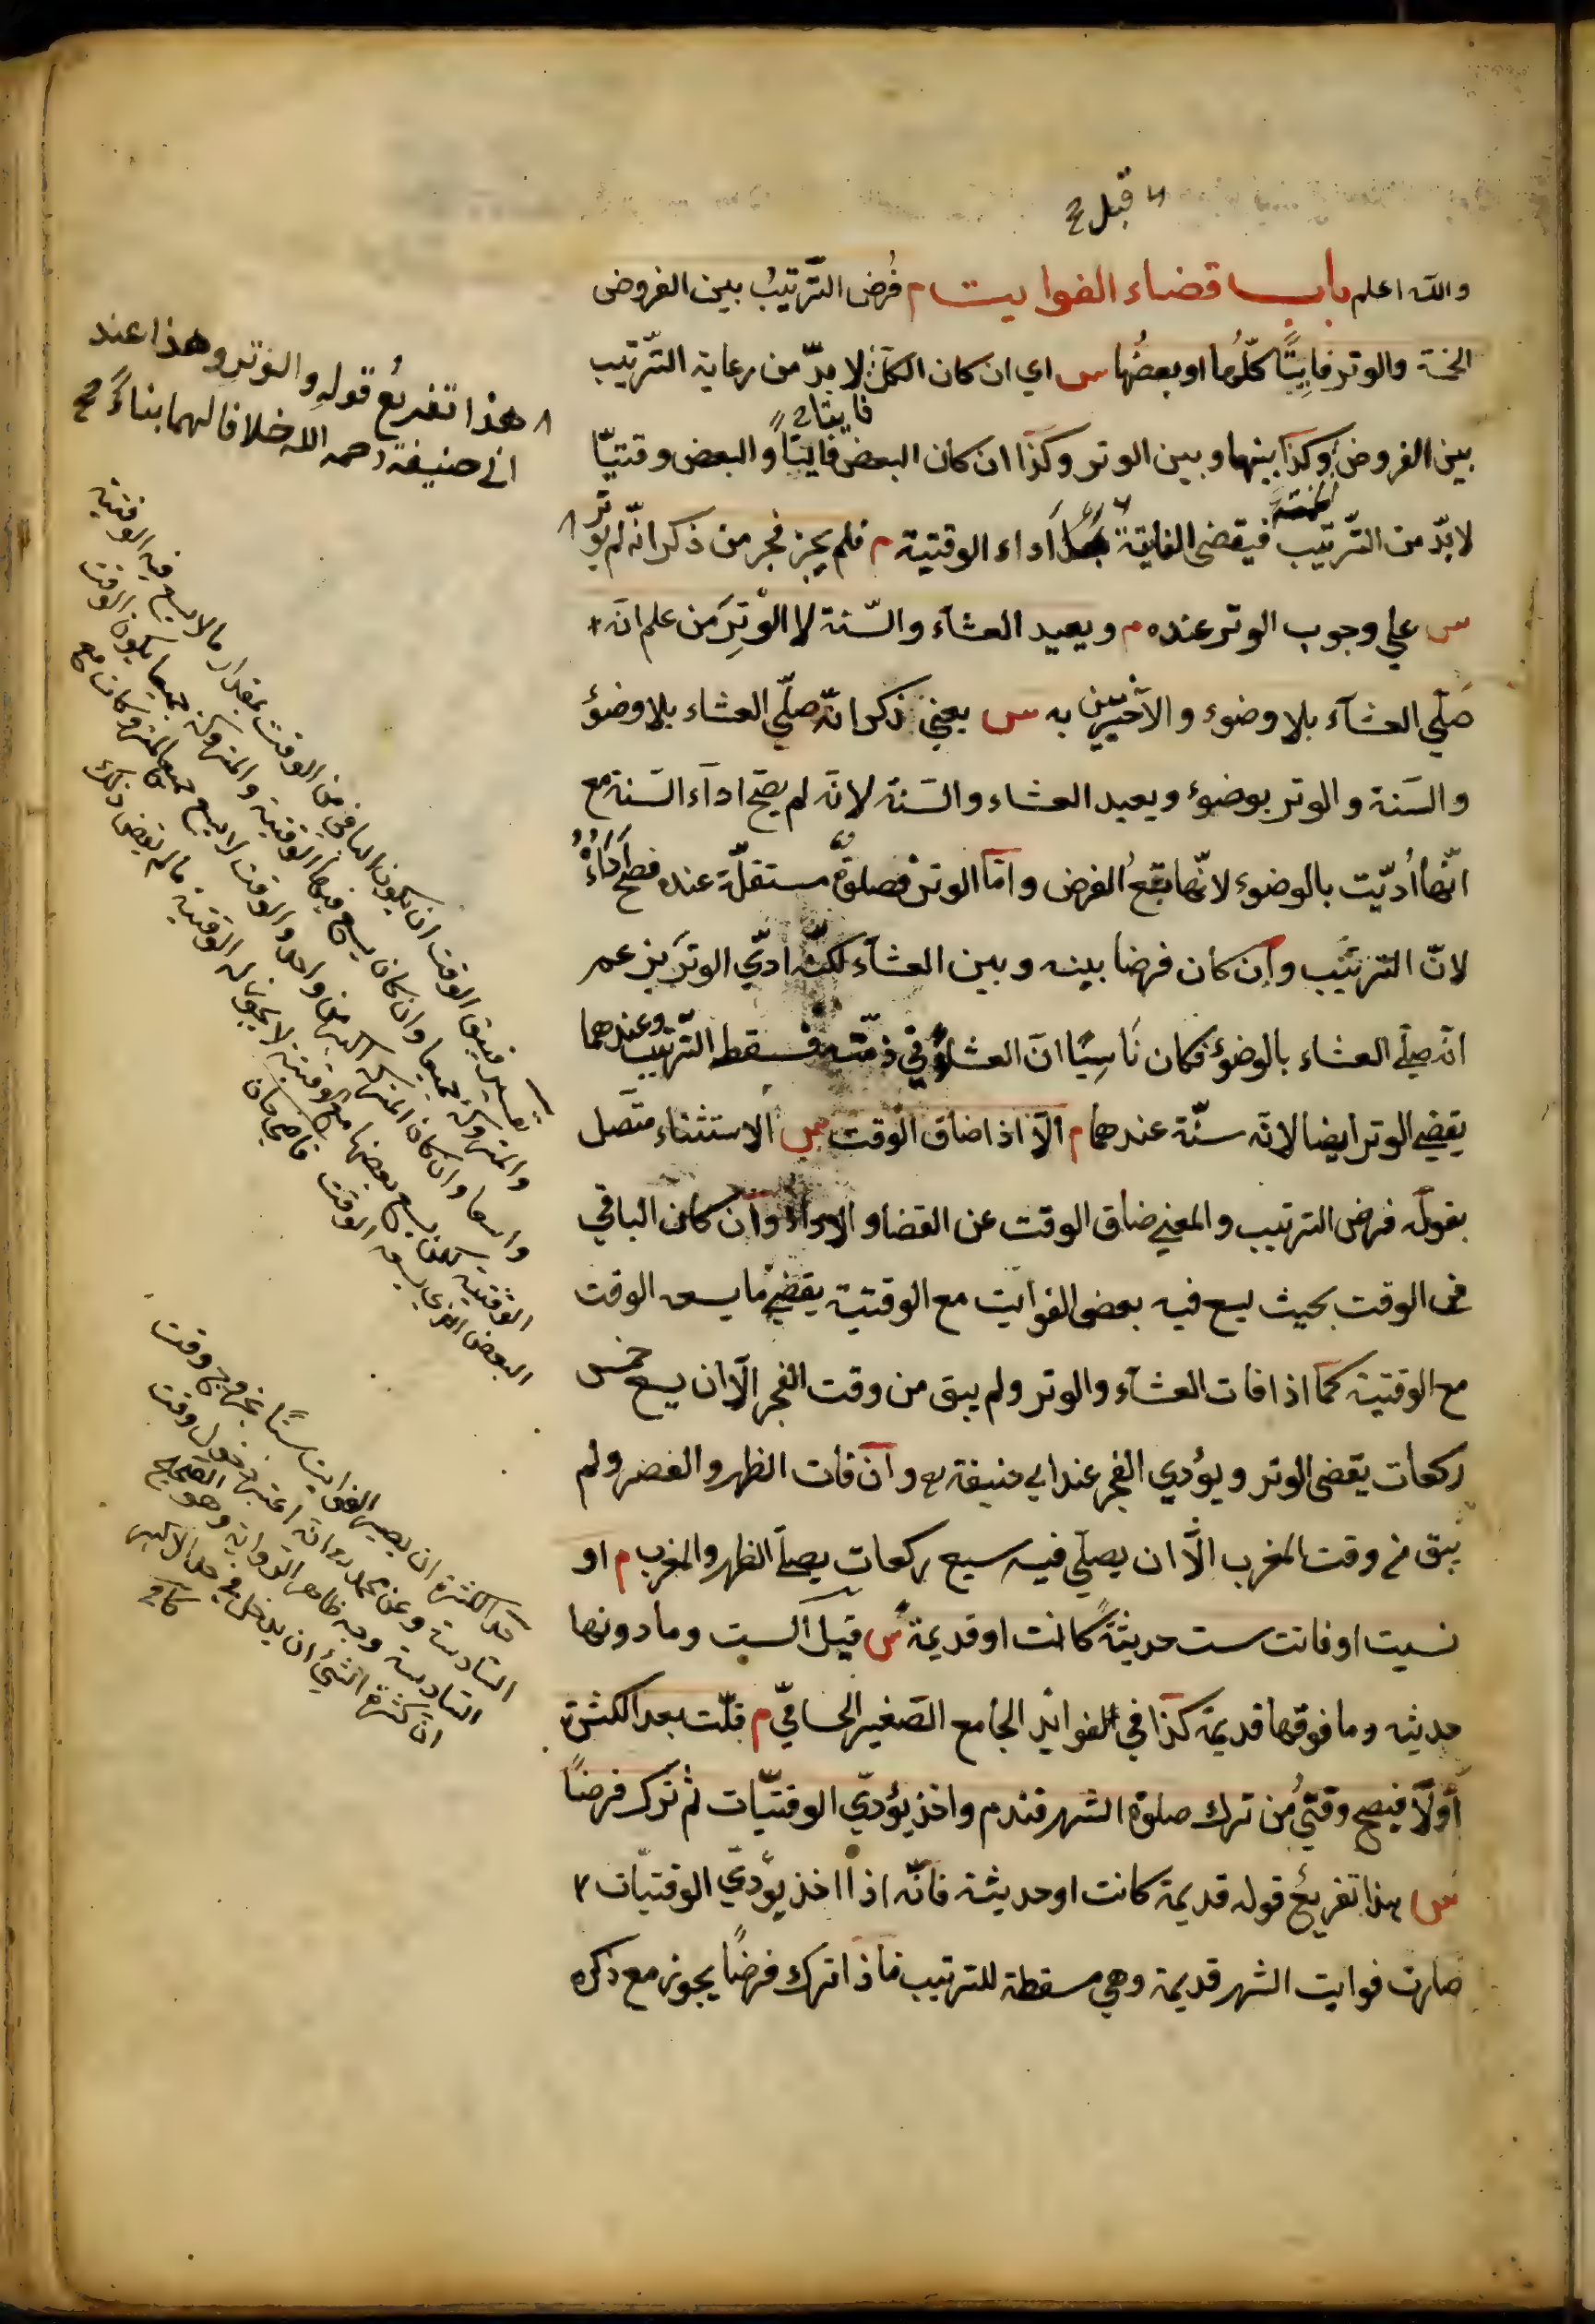 قبل
والله اعلم باب قضاء الفوايت م فُرض الترتيبُ بين الفروض
الخمسة والوتر فايِتًا كلُّها او بعضُها س اي ان كان الكل لا بدّ من رعاية الترتيب
فايتا
بين الفروض وكذا بينها وبين الوتر وكذا ان كان البعض فايتًا والبعض وقتيّا
لا بدّ من الترتيب فيقضى الفايتة أداء الوقتية م فلم يجز فجر من ذكر انّه لم يوتر
س على وجوب الوتر عنده م ويعيد العشاء والسّنة لا الوترَ من علم انّه
صلّي العشاء بلا وضوء والأخيرين به س يعني ذكر انّه صلّي العشاء بلا وضوء
والسنة والوتر بوضوء ويعيد العشاء والسنة لانه لم يصحّ اداء السنة مع
انّها أدّيت بالوضوء لانّها تبعُ الفرض وامّا الوتر فصلوةٌ مستقلّة عنده فصحّ أداؤُهُ
لانّ الترتيب وان كان فرضا بينه وبين العشاء لكنّه ادّي الوتر بزعم
انّه صلّي العشاء بالوضوء فكان نَاسِيًا انّ العشاء في ذمّته فسقط التّرتيب وعندهما
يقضي الوتر ايضا لانّه سنّة عندهما م الّا اذا ضاق الوقت س الاستثناء متّصل
بقوله فرض الترتيب والمعني ضاق الوقت عن القضاء والاداء وان كان الباقي
من الوقت بحيث يسع فيه بعض الفوايت مع الوقتية يقضي ما يسعه الوقت
مع الوقتية كما اذا فات العشاء والوتر ولم يبق من وقت الفجر الّا ان يسع خمس
ركعات يقضي الوتر ويؤدي الفجر عند ابي حنيفة وان فات الظهر والعصر ولم
يبق من وقت المغرب الّا ان يصلّي فيه سبع ركعات يصلّي الظهر والمغرب م او
نسيت او فاتت ست حديثةً كانت او قديمة س قيل الست وما دونها
حديثه وما فوقها قديمة كذا في الفوايد الجامع الصّغير الحساميّ م قلّت بعد الكثرة
أولا فيصح وقتيُّ من ترك صلوة الشهر فندم واخذ يؤدّي الوقتيّات ثم ترك فرضًا
س هذا تفريعُ قوله قديمة كانت او حديثة فانّه اذا اخذ يؤدّي الوقتيّات
صارت فوايت الشهر قديمة وهي مسقطة للترتيب فاذا ترك فرضًا يجوز مع ذكره
هذا تفريعُ قولهِ والوترِ وهذا عند
ابي حنيفة رحمه الله خلافا لهما بناءً
تفسير ضيق الوقت ان يكون الباقي من الوقت بمقدار ما لا يسع فيه الوقتية
والمتروكة جميعا وان كان يسع فيها الوقتية والمتروكة جميعا يكون الوقت
واسعا وان كان المتروكة اكثر من واحد والوقت لا يسع جميع المتروكات مع
الوقتية لكن يسع بعضها مع الوقتية لا يجوز له الوقتية ما لم يقض ذلك
البعض الذي يسعه الوقت قاضي خان
حد الكثرة ان يصير الفوايت ستًّا بخروج وقت
السّادسة وعن محمد انّه اعتبر دخول وقت
السّادسة وجه ظاهر الرواية وهو الصحيح
انّ كثرة الشيء ان يدخل في حد الاكثر
كافي